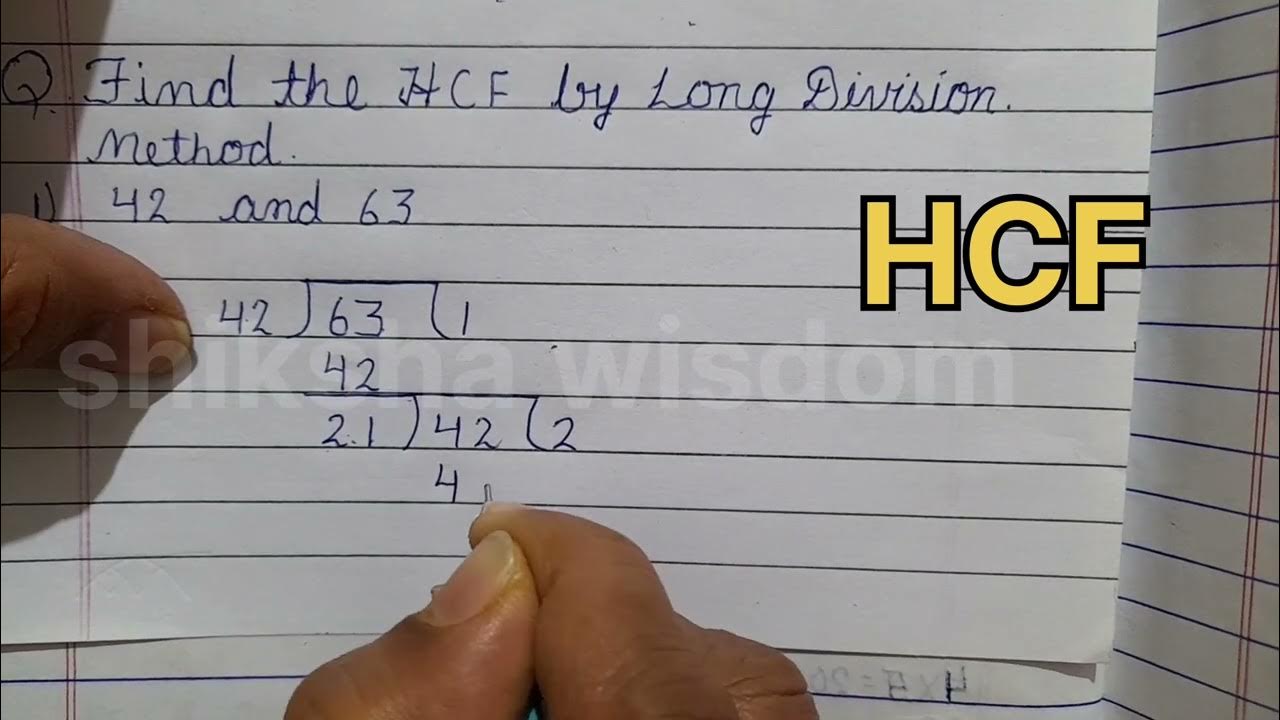 Q. Find the HCF by Long Division.
Method.
1) 42 and 63
HCF
42 ) 63 ( 1
shiksha wisdom
42
21 ) 42 ( 2
4